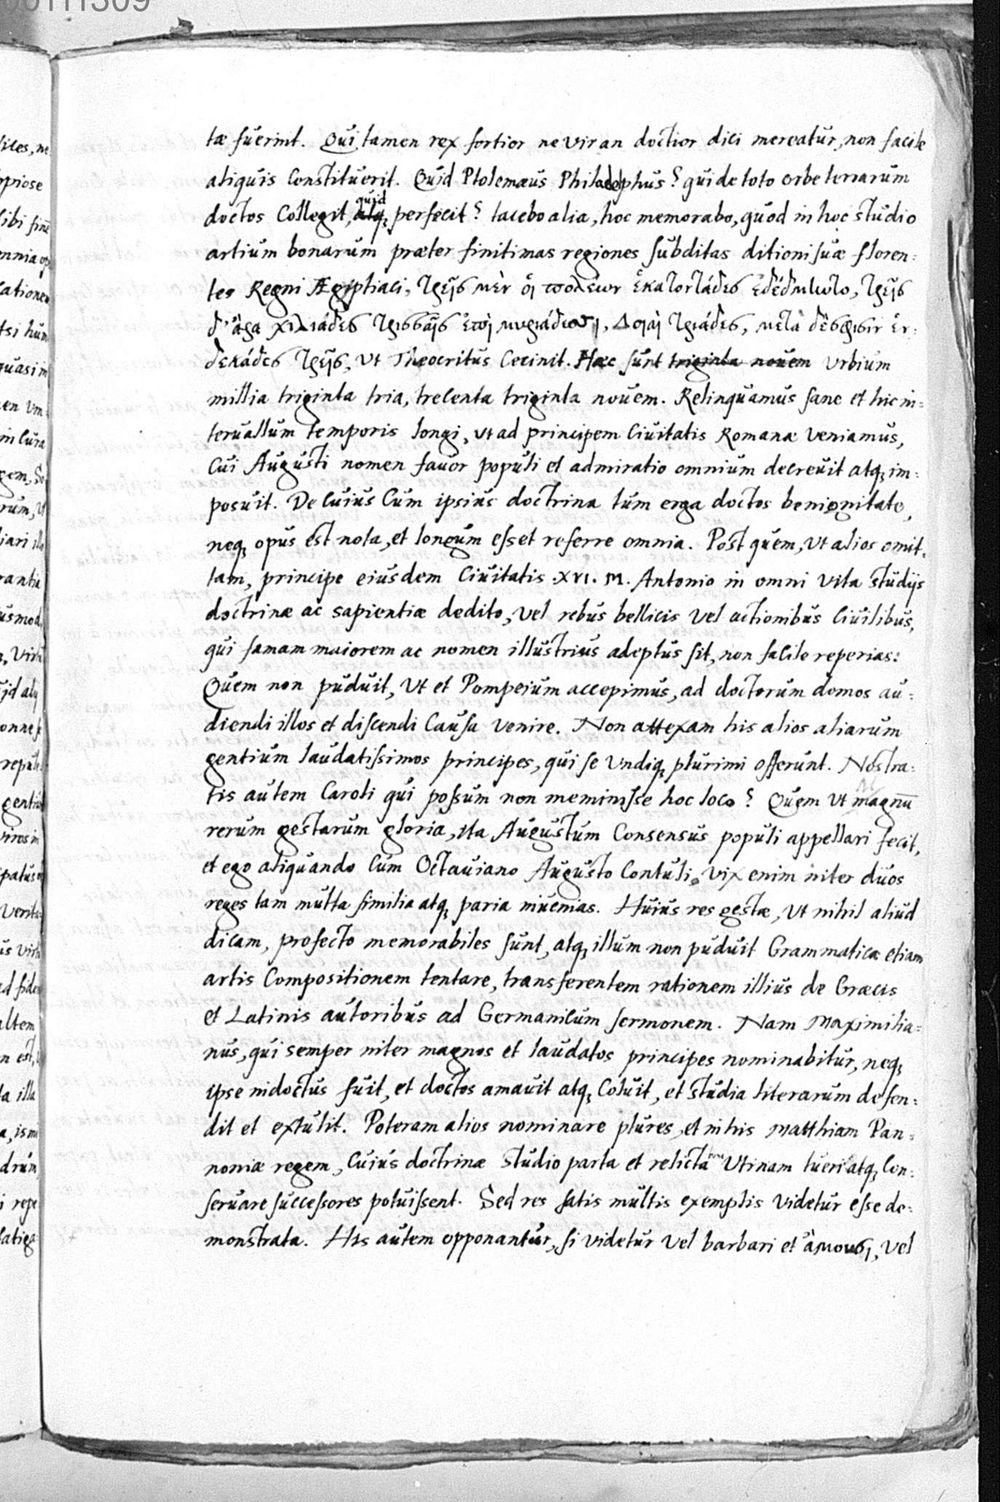 tæ fuerint. Qui tamen rex fortior ne vir an doctior dici mereatur, non facile
aliquis constituerit. Quid Ptolemæus Philadelphus? qui de toto orbe terrarum
doctos collegit, quid perfecit? tacebo alia, hoc memorabo, quod in hoc studio
artium bonarum præter finitimas regiones subditas ditioni suæ floren-
tes Regni Ægyptiaci, τρεῖς μὲν οἱ πολέων ἑκατοντάδες ἐδέδμηντο, τρεῖς
δ' ἄρα χιλιάδες τρισσαῖς ἐπὶ μυριάδεσσι, Δοιαὶ τριάδες, μετὰ δέ σφισιν ἐν-
δεκάδες τρεῖς, ut Theocritus cecinit. Hæc sunt triginta novem urbium
millia triginta tria, trecenta triginta novem. Relinquamus sane et hic in-
tervallum temporis longi, ut ad principem civitatis Romanæ veniamus,
cui Augusti nomen favor populi et admiratio omnium decrevit atq; im-
posuit. De cuius cum ipsius doctrina tum erga doctos benignitate,
neq; opus est nota, et longum esset referre omnia. Post quem, ut alios omit-
tam, principe eiusdem civitatis .XVI. M. Antonio in omni vita studijs
doctrinæ ac sapientiæ dedito, vel rebus bellicis vel actionibus civilibus,
qui famam maiorem ac nomen illustrius adeptus sit, non facile reperias:
Quem non puduit, ut et Pompeium accepimus, ad doctorum domos au-
diendi illos et discendi causa venire. Non attexam his alios aliarum
gentium laudatissimos principes, qui se undiq; plurimi offerunt. Nostra-
tis autem Caroli qui possum non meminisse hoc loco? Quem ut magnū
rerum gestarum gloria, ita Augustum consensus populi appellari fecit,
et ego aliquando cum Octaviano Augusto contuli. vix enim inter duos
reges tam multa similia atq; paria invenias. Huius res gestæ, ut nihil aliud
dicam, profecto memorabiles sunt, atq; illum non puduit Grammaticæ etiam
artis compositionem tentare, transferentem rationem illius de Græcis
et Latinis autoribus ad Germanicum sermonem. Nam Maximilia-
nus, qui semper inter magnos et laudatos principes nominabitur, neq;
ipse indoctus fuit, et doctos amavit atq; coluit, et studia literarum defen-
dit et extulit. Poteram alios nominare plures, et in his Matthiam Pan-
noniæ regem, cuius doctrinæ studio parta et relicta utinam tueri atq; con-
servare successores potuissent. Sed res satis multis exemplis videtur esse de-
monstrata. His autem opponantur, si videtur vel barbari et ἄμουσοι, vel